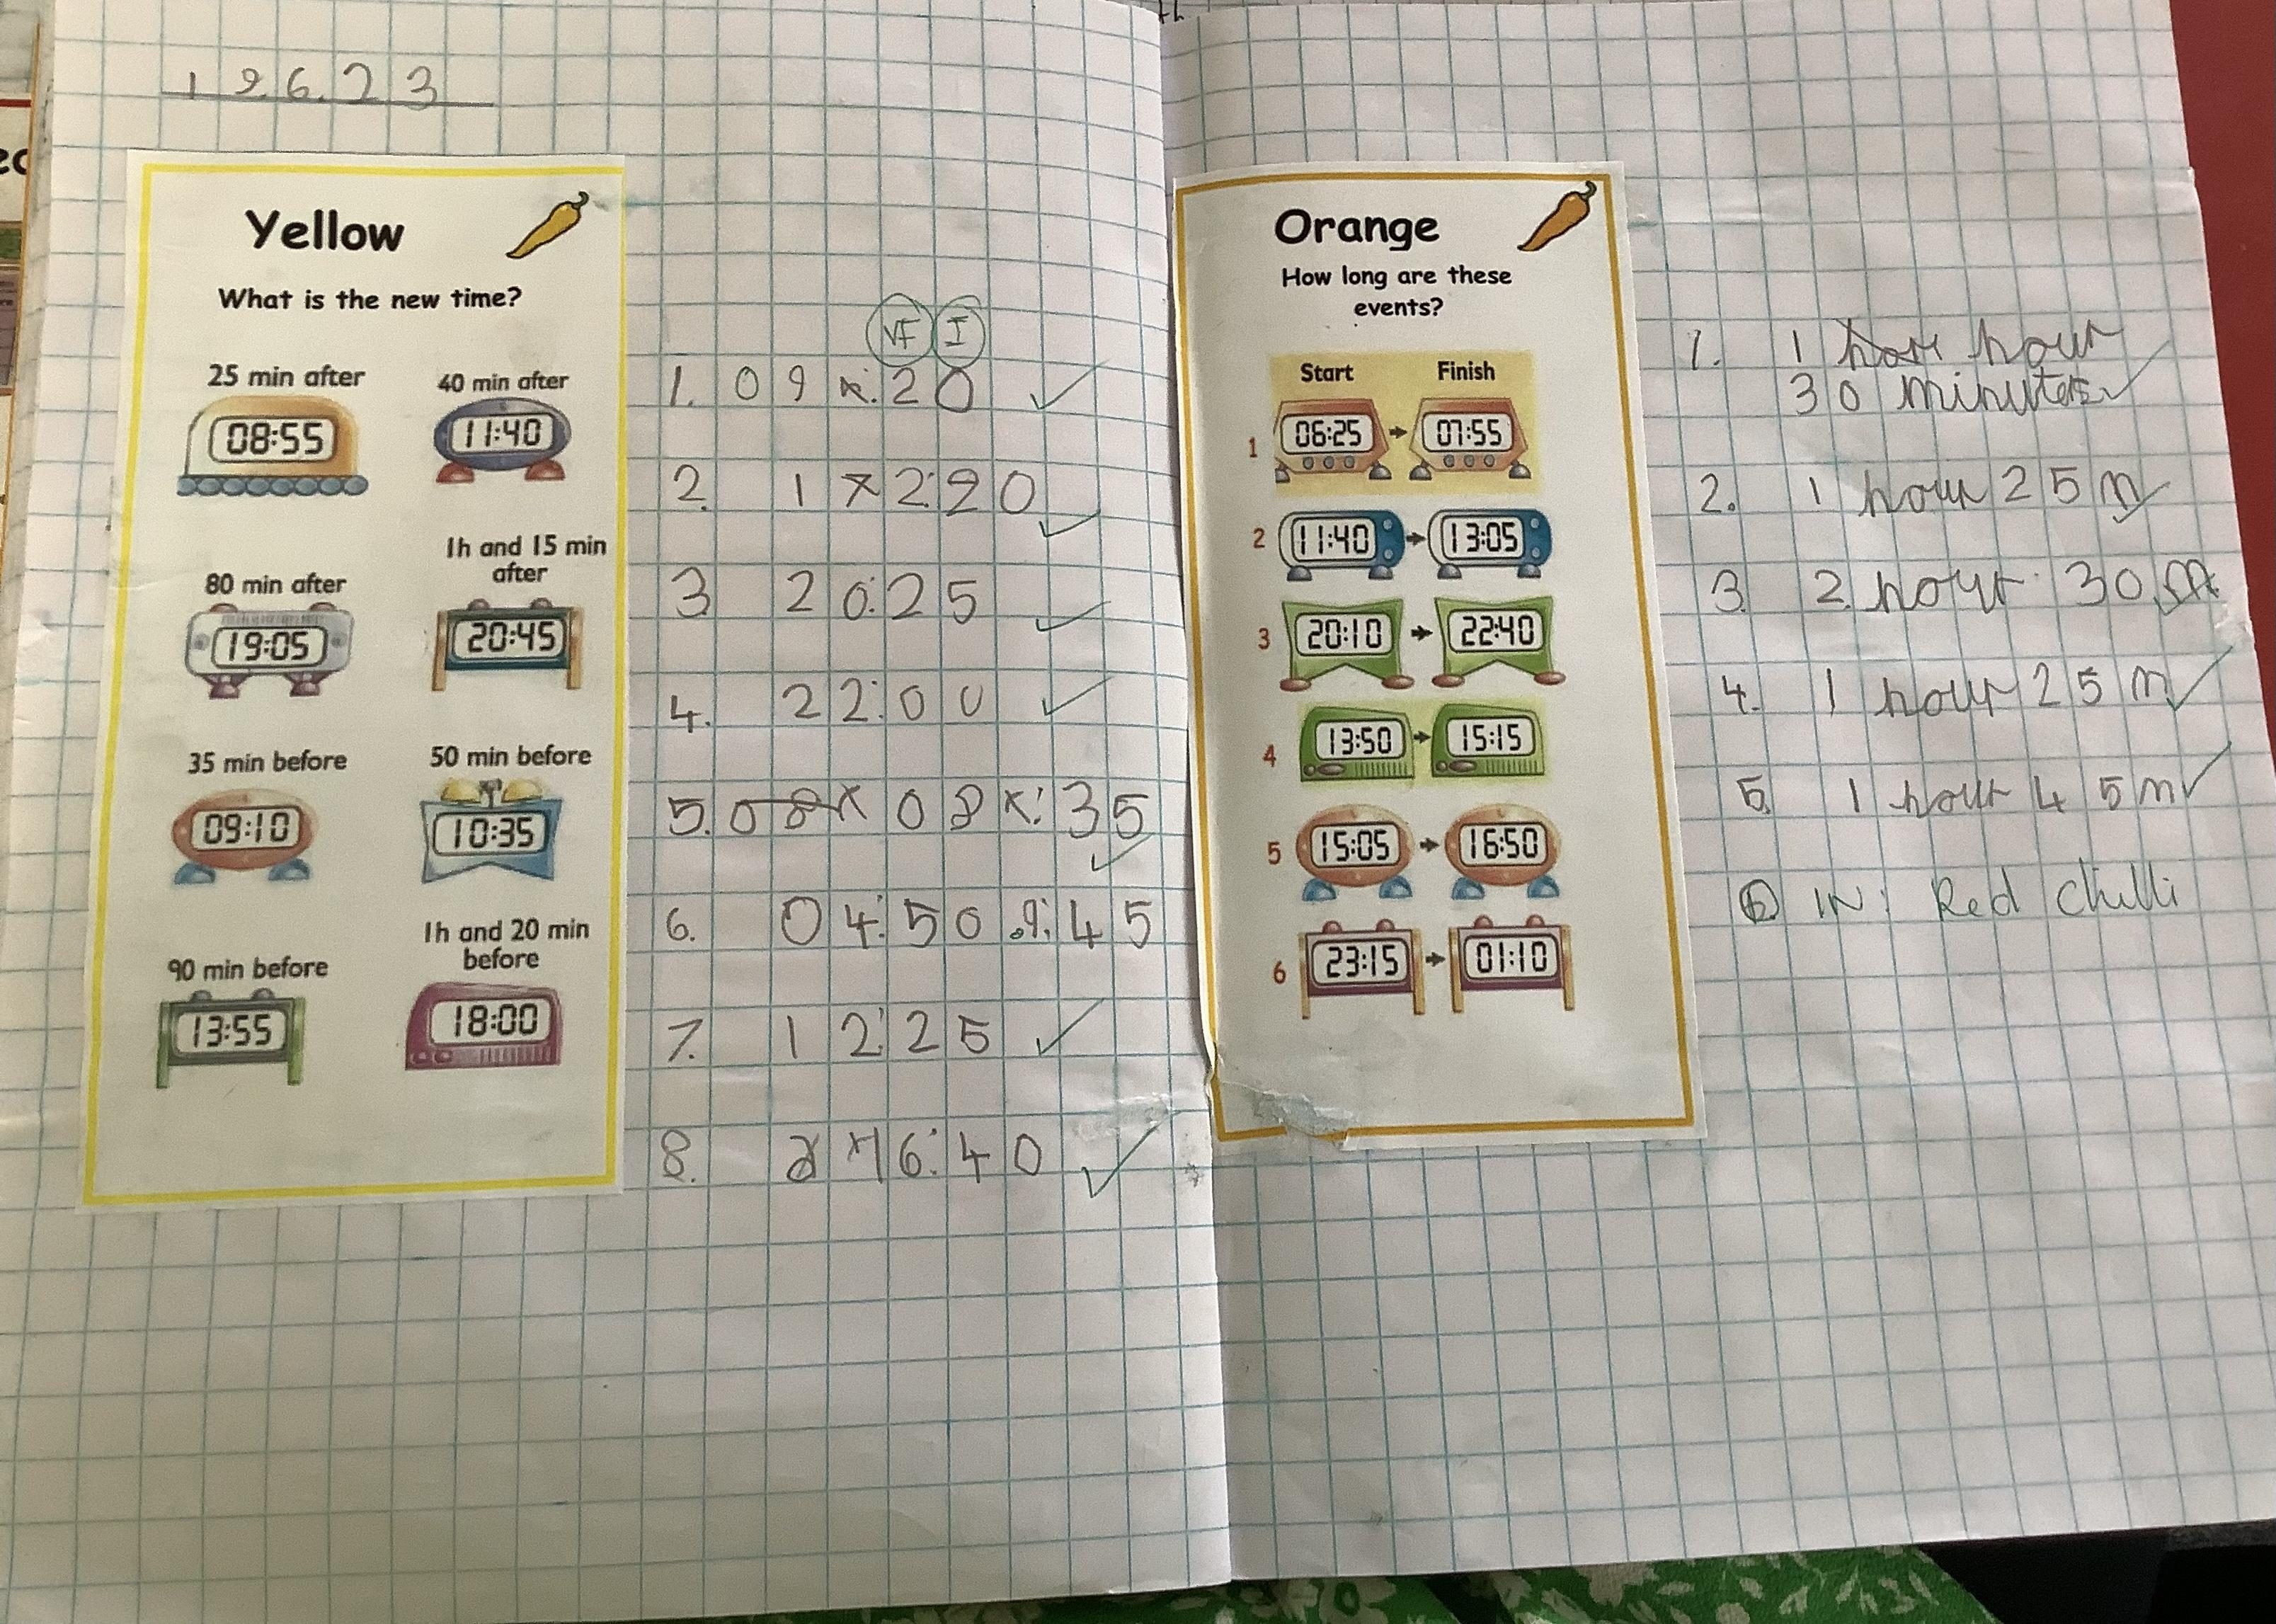 19.6.23
Yellow
What is the new time?
25 min after
40 min after
08:55
11:40
80 min after
1h and 15 min
after
19:05
20:45
35 min before
50 min before
09:10
10:35
90 min before
1h and 20 min
before
13:55
18:00
VF I
1. 09:20
2. 12:20
3. 20:25
4. 22:00
5. 08:35
6. 04:50 9:45
7. 12:25
8. 16:40
Orange
How long are these
events?
Start Finish
1 06:25 07:55
2 11:40 13:05
3 20:10 22:40
4 13:50 15:15
5 15:05 16:50
6 23:15 01:10
1. 1 hour
30 minutes
2. 1 hour 25 m
3. 2 hour 30 m
4. 1 hour 25 m
5. 1 hour 45 m
6 IN: Red Chilli